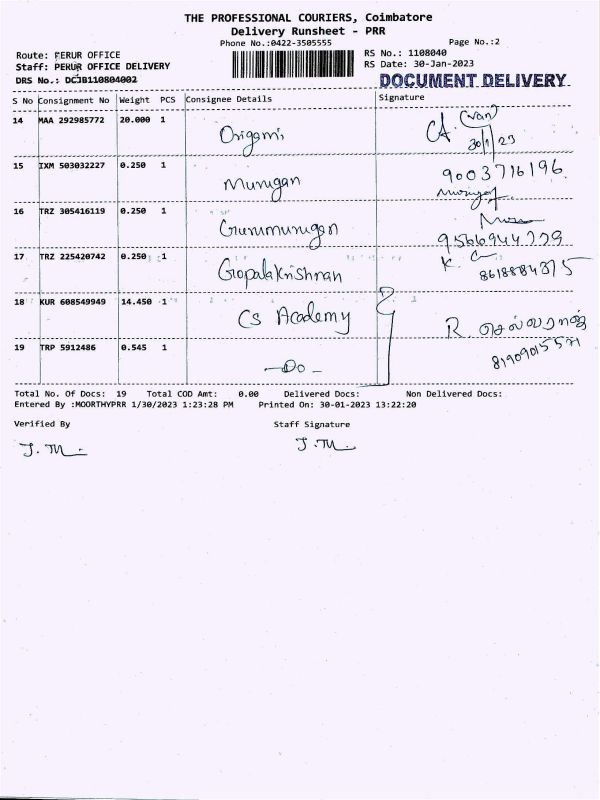 THE PROFESSIONAL COURIERS, Coimbatore
Delivery Runsheet - PRR
Phone No.:0422-3505555
Page No.:2
Route: PERUR OFFICE
RS No.: 1108040
Staff: PERUR OFFICE DELIVERY
RS Date: 30-Jan-2023
DRS No.: DCJB110804002
DOCUMENT DELIVERY
S No Consignment No Weight PCS Consignee Details Signature
14 MAA 292985772 20.000 1 Origami
30/1/23
15 IXM 503032227 0.250 1 Murugan 9003716196
16 TRZ 305416119 0.250 1 Gurumurugan
17 TRZ 225420742 0.250 1 Gopalakrishnan K.
8618884375
18 KUR 608549949 14.450 1 CS Academy R. செல்வராஜ்
19 TRP 5912486 0.545 1 -Do-
Total No. Of Docs: 19 Total COD Amt: 0.00 Delivered Docs: Non Delivered Docs:
Entered By :MOORTHYPRR 1/30/2023 1:23:28 PM Printed On: 30-01-2023 13:22:20
Verified By Staff Signature
J.M. J.M.